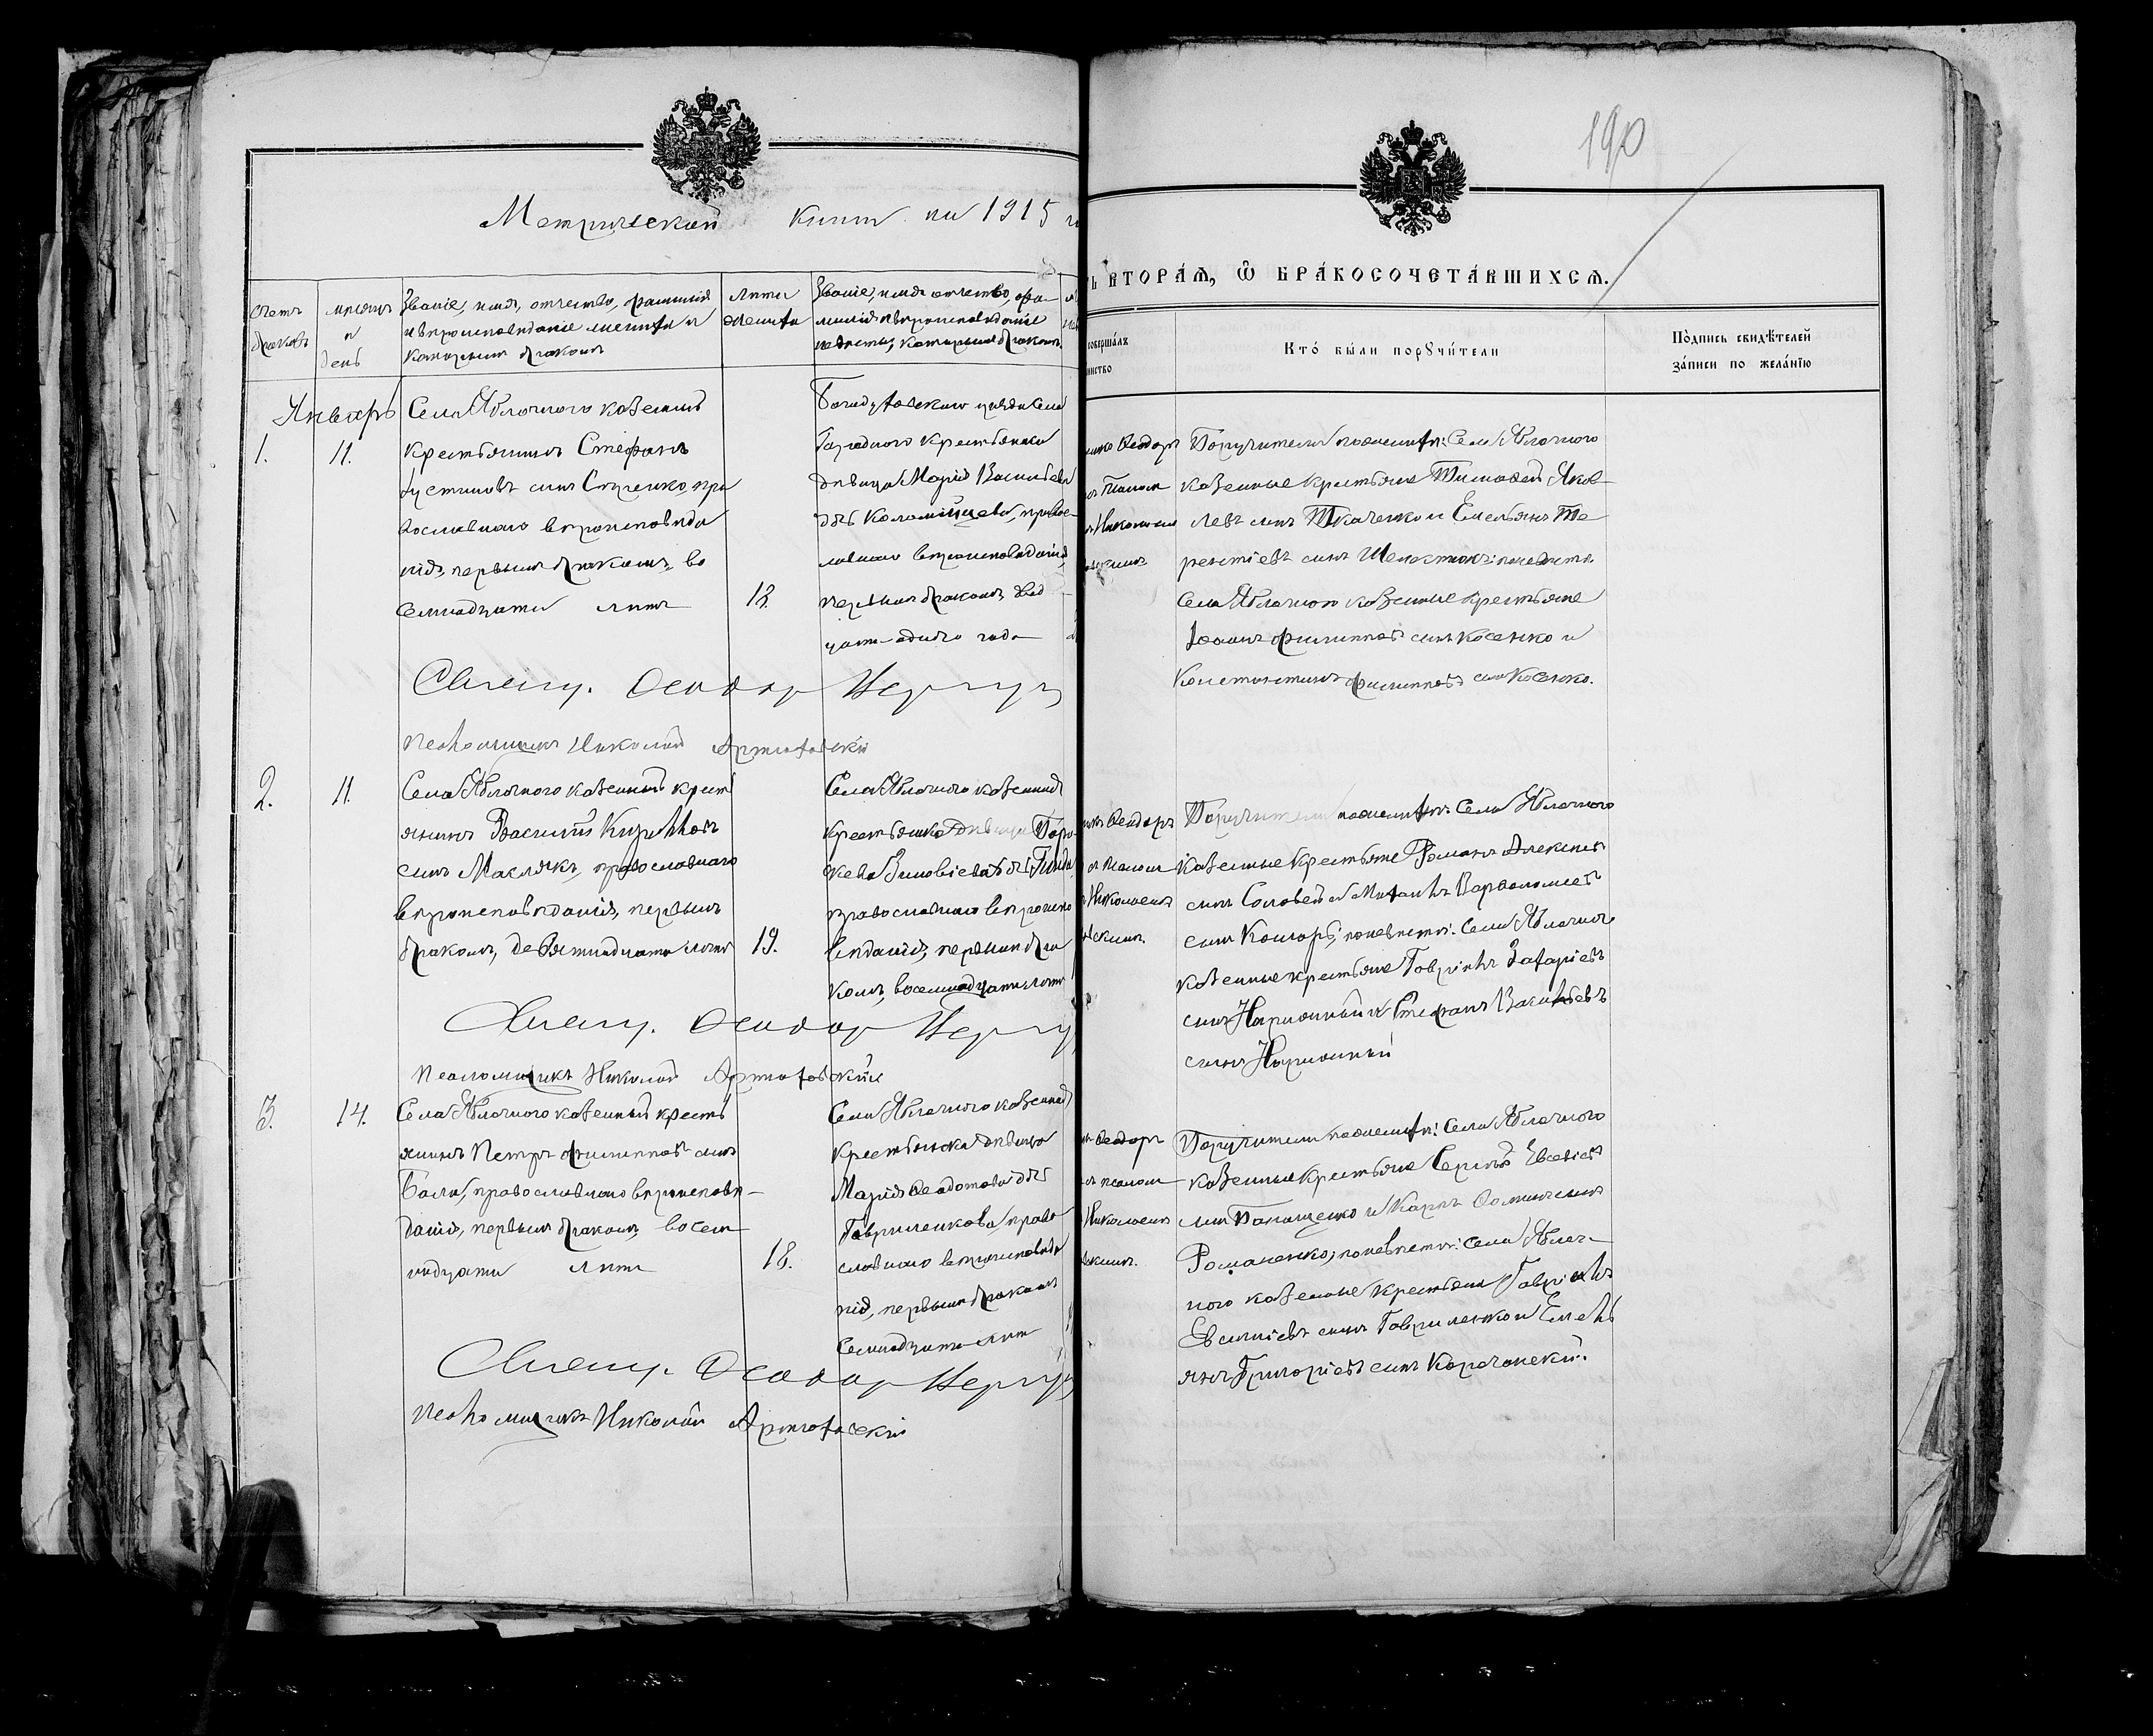 190
Метрической книги на 1915
Ь ВТОРА́Я, Ѡ БРАКОСОЧЕТА́ВШИХСЯ.
Счетъ браковъ
Мѣсяцъ и день
Званіе, имя, отчество, фамилія
и вѣроисповѣданіе жениха и
которымъ бракомъ
Лѣта жениха
Званіе, имя отчество, фа-
милія и вѣроисповѣданіе
невѣсты, которымъ бракомъ
совершалъ
Кто́ бы́ли порꙋчи́тели
По́дпись свидѣ́телей
за́писи по жела́нїю
Январь
1.
11.
Села Яблочного казенный
крестьянинъ Стефанъ
Іустиновъ сынъ пра
вославнаго вѣроисповѣда
нія, первымъ бракомъ, во
семнадцати лѣтъ
18.
Богодуховскаго уѣзда села
Городного крестьянка
дѣвица Марія Васильева
дчь Коломійцева, правос-
лавнаго вѣроисповѣданія,
первымъ бракомъ, двад
цати одного года
Ѳеодоръ
Николаемъ
Поручители по женихѣ: Села Яблочного
казенные крестьяне Тимоѳей Яков-
левъ сынъ Ткаченко и Емельянъ Те-
рентіевъ сынъ по невѣстѣ:
Села Яблочного казенные крестьяне
Іоаннъ Филипповъ сынъ Косенко и
Константинъ Филипповъ сынъ Косенко.
Священ. Ѳеодоръ
Псаломщикъ Николай Артюховскій
2.
11.
Села Яблочного казенный крест
янинъ Василій Кирилловъ
сынъ Маслякъ, православнаго
вѣроисповѣданія, первымъ
бракомъ, девятнадцати лѣтъ
19.
Села Яблочного казенная
крестьянка дѣвица
Зиновіева дчь
православнаго вѣроиспо
вѣданія, первымъ бра
комъ, восемнадцати лѣтъ
Ѳеодоръ
Николаемъ
Поручители по женихѣ: Села Яблочного
казенные крестьяне Романъ Алексѣевъ
сынъ Соловей и Михаилъ Варѳоломеевъ
сынъ по невѣстѣ: Села Яблочного
казенные крестьяне Гавріилъ Захаріевъ
сынъ Нарижный и Стефанъ Васильевъ
сынъ Нарижный
Священ. Ѳеодоръ
Псаломщикъ Николай Артюховскій
3.
14.
Села Яблочного казенный кресть
янинъ Петръ Филипповъ сынъ
православнаго вѣроисповѣ-
данія, первымъ бракомъ, восем
надцати лѣтъ
18.
Села Яблочного казенная
крестьянка дѣвица
Марія Ѳедотова дчь
Гавриленкова, право
славнаго вѣроисповѣда
нія, первымъ бракомъ
семнадцати лѣтъ
Ѳеодоръ
Николаемъ
Поручители по женихѣ: Села Яблочного
казенные крестьяне Сергѣй Евсевіевъ
сынъ и Карпъ Ѳоминъ сынъ
Романенко; по невѣстѣ: Села Яблоч-
ного казенные крестьяне Гавріилъ
сынъ Гавриленко и Емель
янъ Григоріевъ сынъ Корочанскій.
Священ. Ѳеодоръ
Псаломщикъ Николай Артюховскій